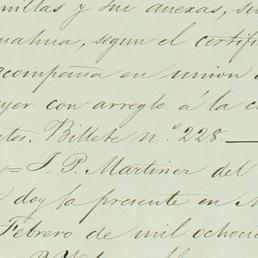 nillas y sus anexas, su
uahua, segun el certifi
acompaña en union d
yer con arreglo á la c
tes. Billete n.° 228. —
= J. P. Martinez del
doy la presente en M
Febrero de mil ochoci